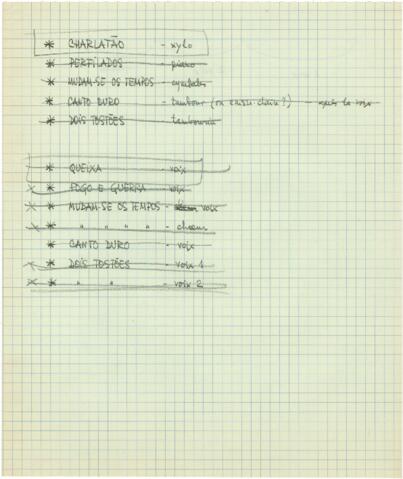 * CHARLATÃO - xylo
* PERFILADOS - piano
* MUDAM-SE OS TEMPOS - cymbales
* CANTO DURO - tambour (ou caisse claire?) - après la voix
* DOIS TOSTÕES - tambourin
* QUEIXA - voix
* FOGO E GUERRA - voix
* MUDAM-SE OS TEMPOS - voix
* " " " " - chœur
* CANTO DURO - voix
* DOIS TOSTÕES - voix 1
* " " - voix 2